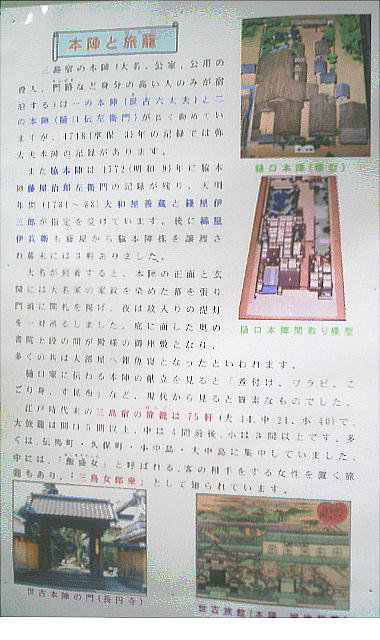 本陣と旅籠
三島宿の本陣(大名、公家、公用の
役人、門跡など身分の高い人のみが宿
泊する)は一の本陣(世古六太夫)と二
の本陣(樋口伝左衛門)が長く勤めてい
ますが、1718(享保3)年の記録では弥
太夫本陣の記録があります。
また脇本陣は1772(明和9)年に脇本
陣藤屋治郎左衛門の記録が残り、天明
年間(1781~88)大和屋善蔵と銭屋伊
三郎が指定を受けています。後に綿屋
伊兵衛も藤屋から脇本陣株を譲渡さ
れ幕末には3軒ありました。
大名が到着すると、本陣の正面と玄
関には大名家の家紋を染めた幕を張り
門前に関札を掲げ、夜は紋入りの提灯
を一対吊るしました。庭に面した奥の
書院上段の間が殿様の御座敷となり、
多くの共は大部屋へ雑魚寝となったといわれます。
樋口家に伝わる本陣の献立を見ると「煮付け、ワラビ、こ
ごり身、す昆布」など、現代から見ると質素なものでした。
江戸時代末の三島宿の旅籠は75軒(大14、中21、小40)で、
大旅籠は間口5間以上、中は4間前後、小は3間以上です。多
くは、伝馬町・久保町・小中島・大中島に集中していました。
中には、「飯盛女」と呼ばれる、客の相手をする女性を置く旅
籠もあり、「三島女郎衆」として知られています。
樋口本陣(模型)
樋口本陣間取り模型
世古本陣の門(長円寺)
世古旅館(本陣